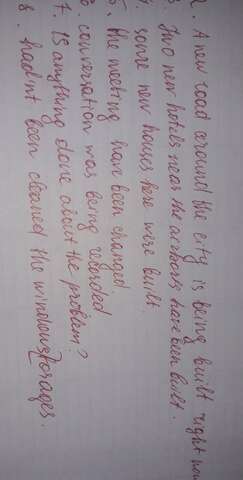 2. A new road around the city is being built right now
3. Two new hotels near the airports have been built.
4. some new houses here were built.
5. the meeting have been changed.
6. conversation was being recorded.
7. Is anything done about the problem?
8. hadn't been cleaned the windows for ages.